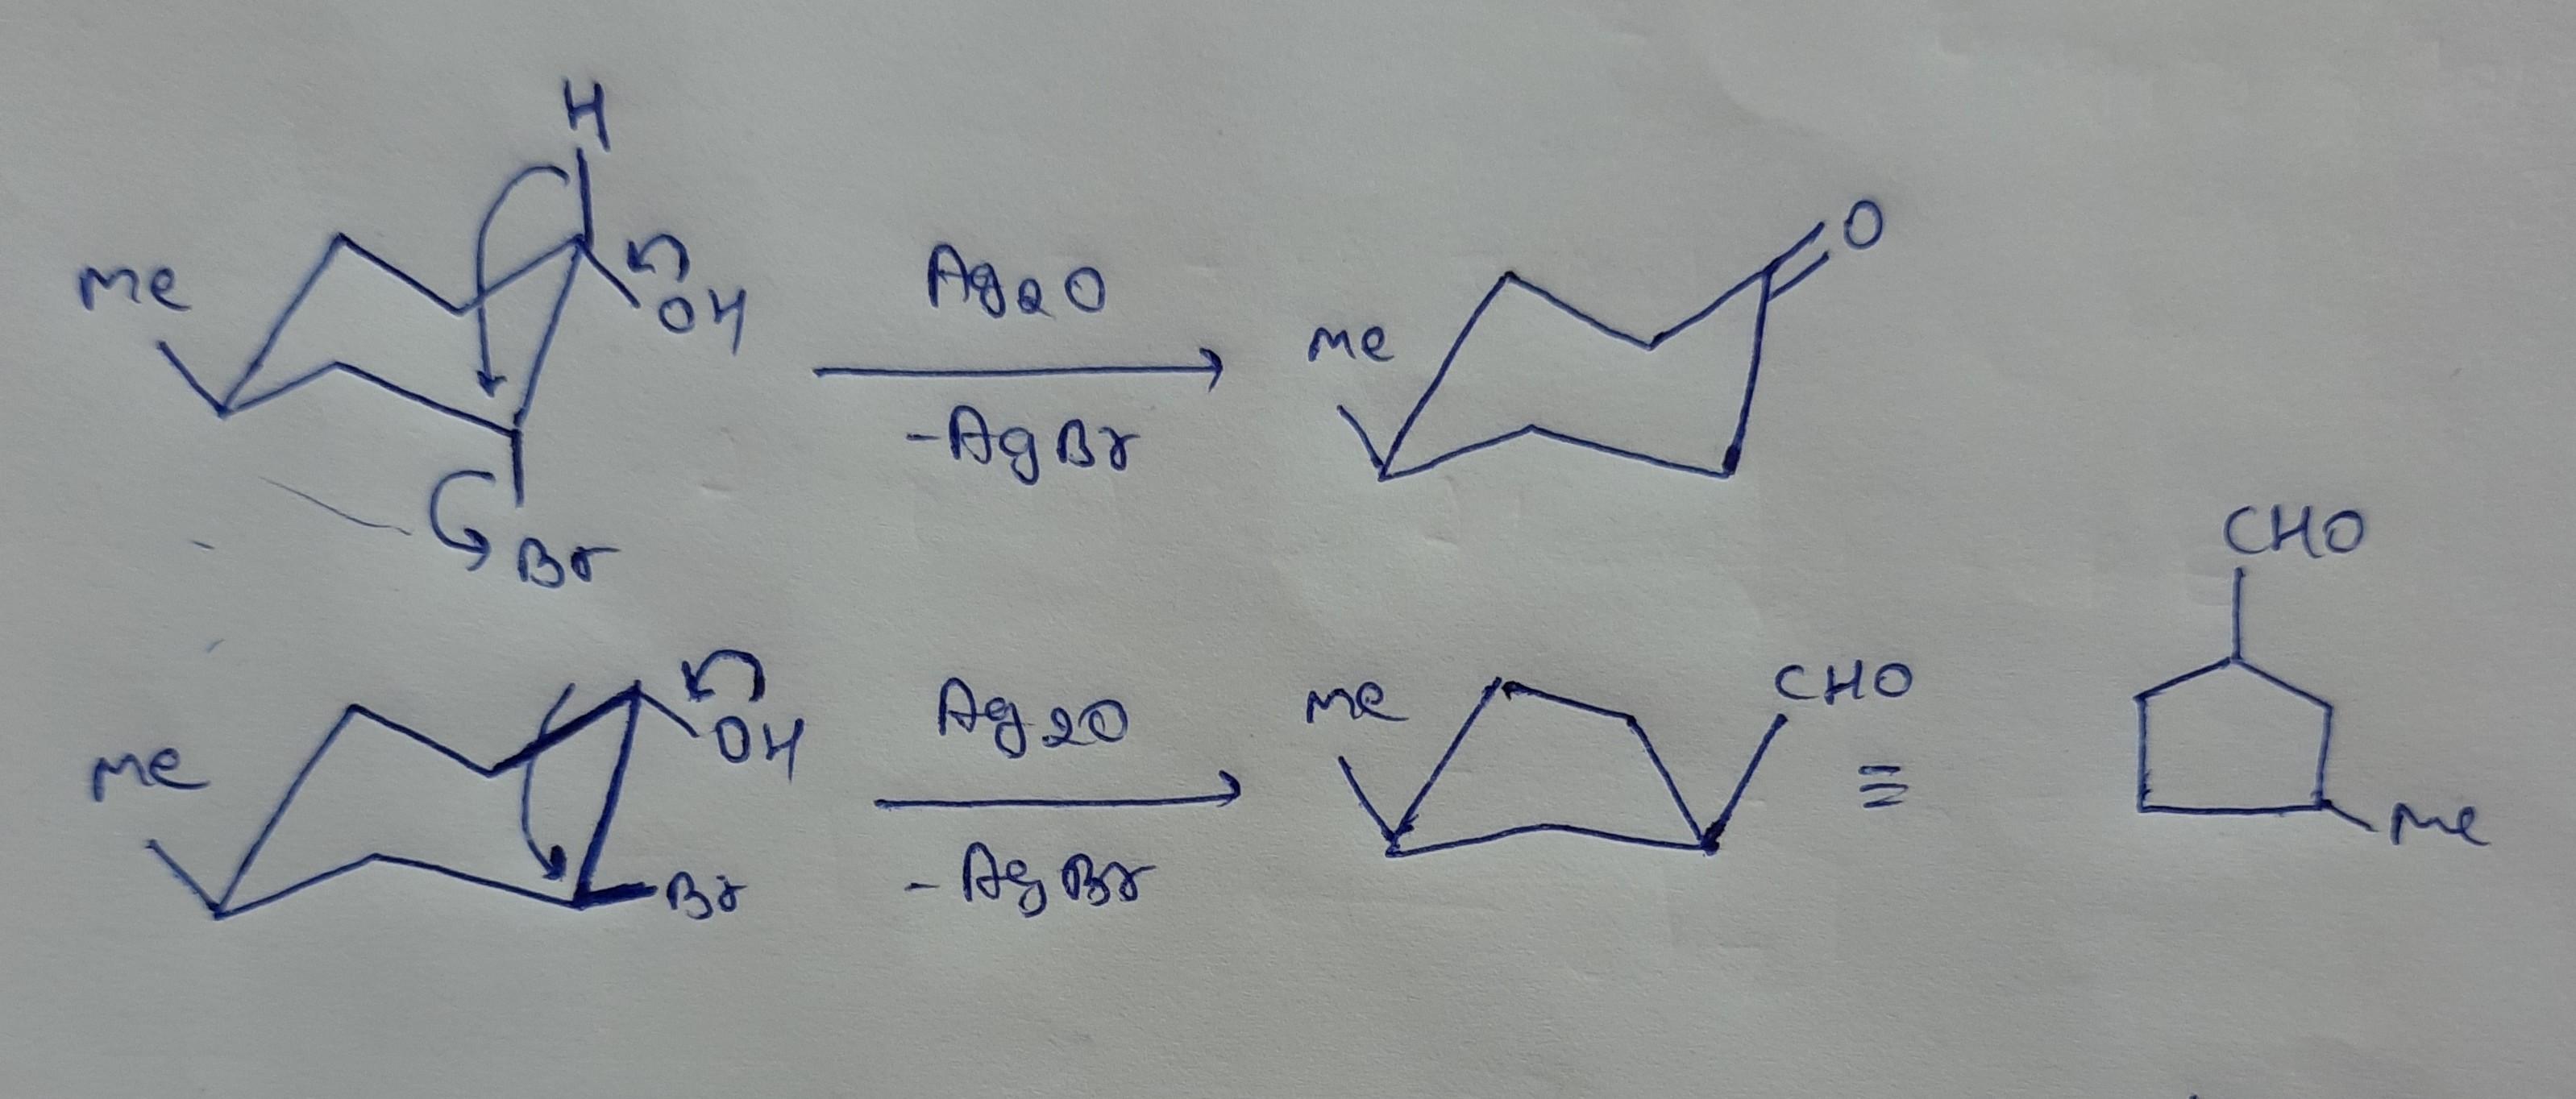 H
Me
OH
Br
Ag2O
-AgBr
Me
O
Me
OH
Br
Ag2O
-AgBr
Me
CHO
≡
CHO
Me